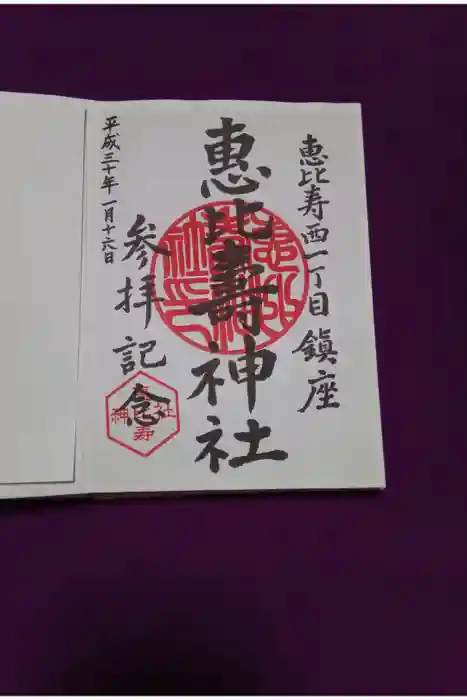 恵比寿西一丁目 鎮座
恵比壽神社
参拝記念
平成三十年一月十六日